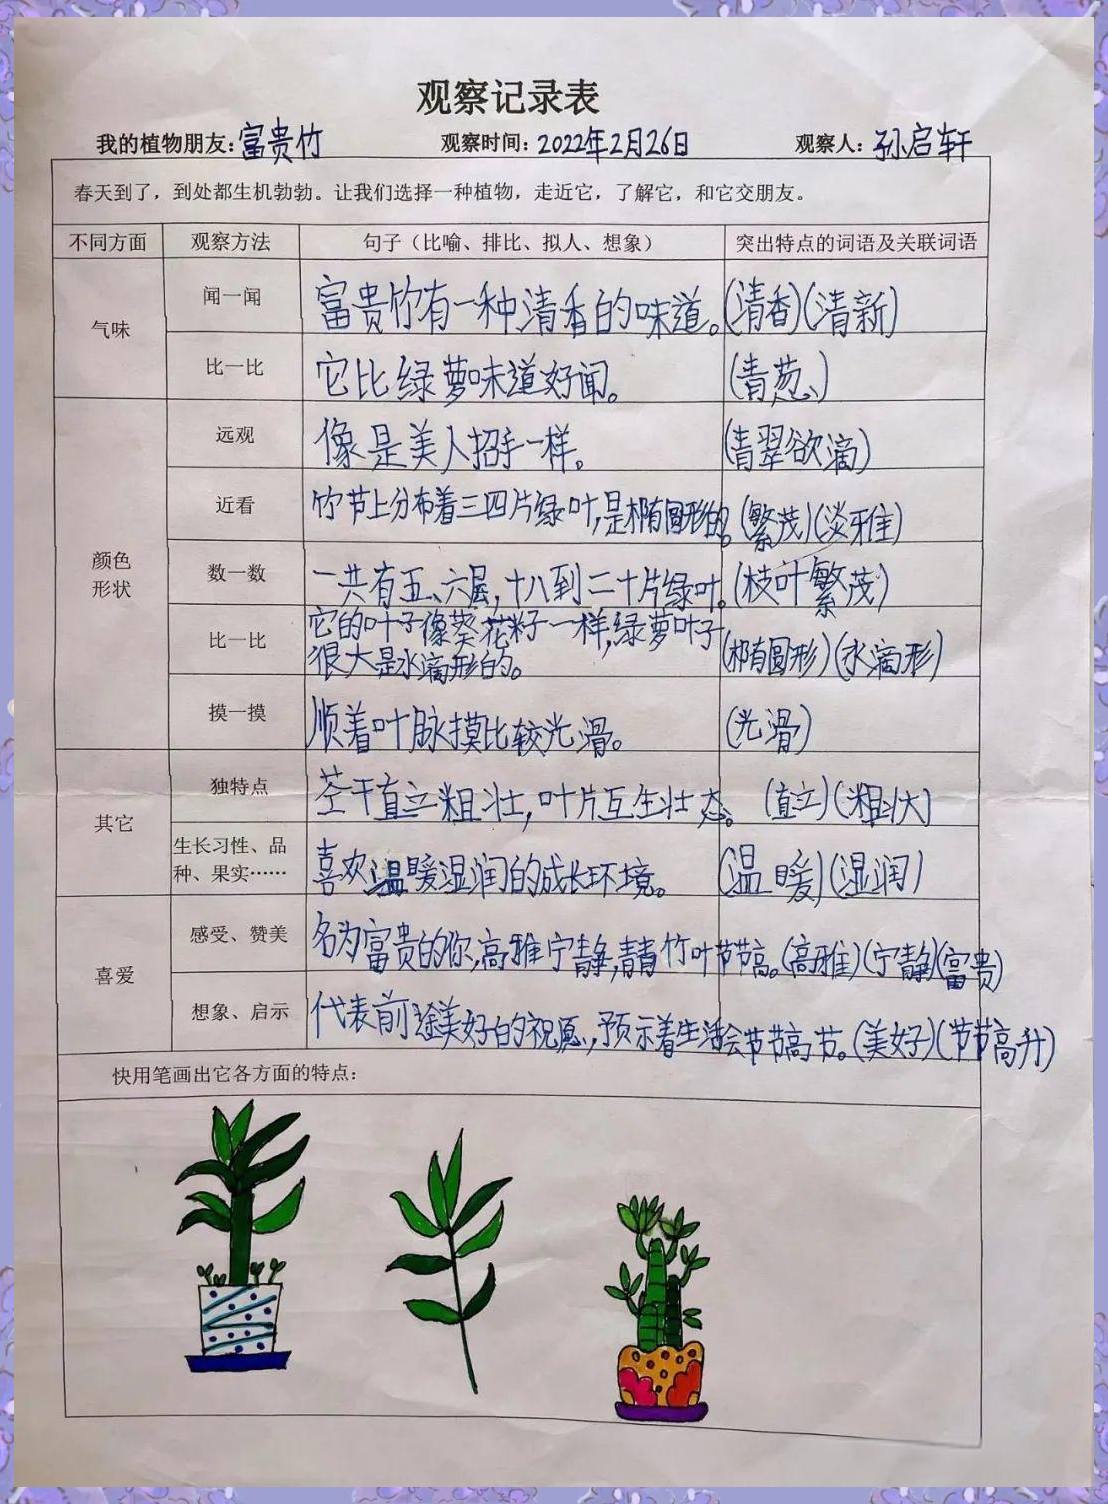 观察记录表
我的植物朋友:富贵竹 观察时间:2022年2月26日 观察人:孙启轩
春天到了，到处都生机勃勃。让我们选择一种植物，走近它，了解它，和它交朋友。
不同方面 观察方法 句子（比喻、排比、拟人、想象） 突出特点的词语及关联词语
气味
闻一闻 富贵竹有一种清香的味道。(清香)(清新)
比一比 它比绿萝味道好闻。 (青葱)
颜色
形状
远观 像是美人招手一样。 (青翠欲滴)
近看 竹节上分布着三四片绿叶,是椭圆形的。(繁茂)(淡雅)
数一数 一共有五、六层,十八到二十片绿叶。(枝叶繁茂)
比一比 它的叶子像葵花籽一样,绿萝叶子
很大是水滴形的。 (椭圆形)(水滴形)
摸一摸 顺着叶脉摸比较光滑。 (光滑)
其它
独特点 茎干直立粗壮,叶片互生壮态。 (直立)(粗壮)
生长习性、品
种、果实…… 喜欢温暖湿润的成长环境。 (温暖)(湿润)
喜爱
感受、赞美 名为富贵的你,高雅宁静,青青竹叶节节高。(高雅)(宁静)(富贵)
想象、启示 代表前途美好的祝愿,预示着生活会节节高节。(美好)(节节高升)
快用笔画出它各方面的特点: